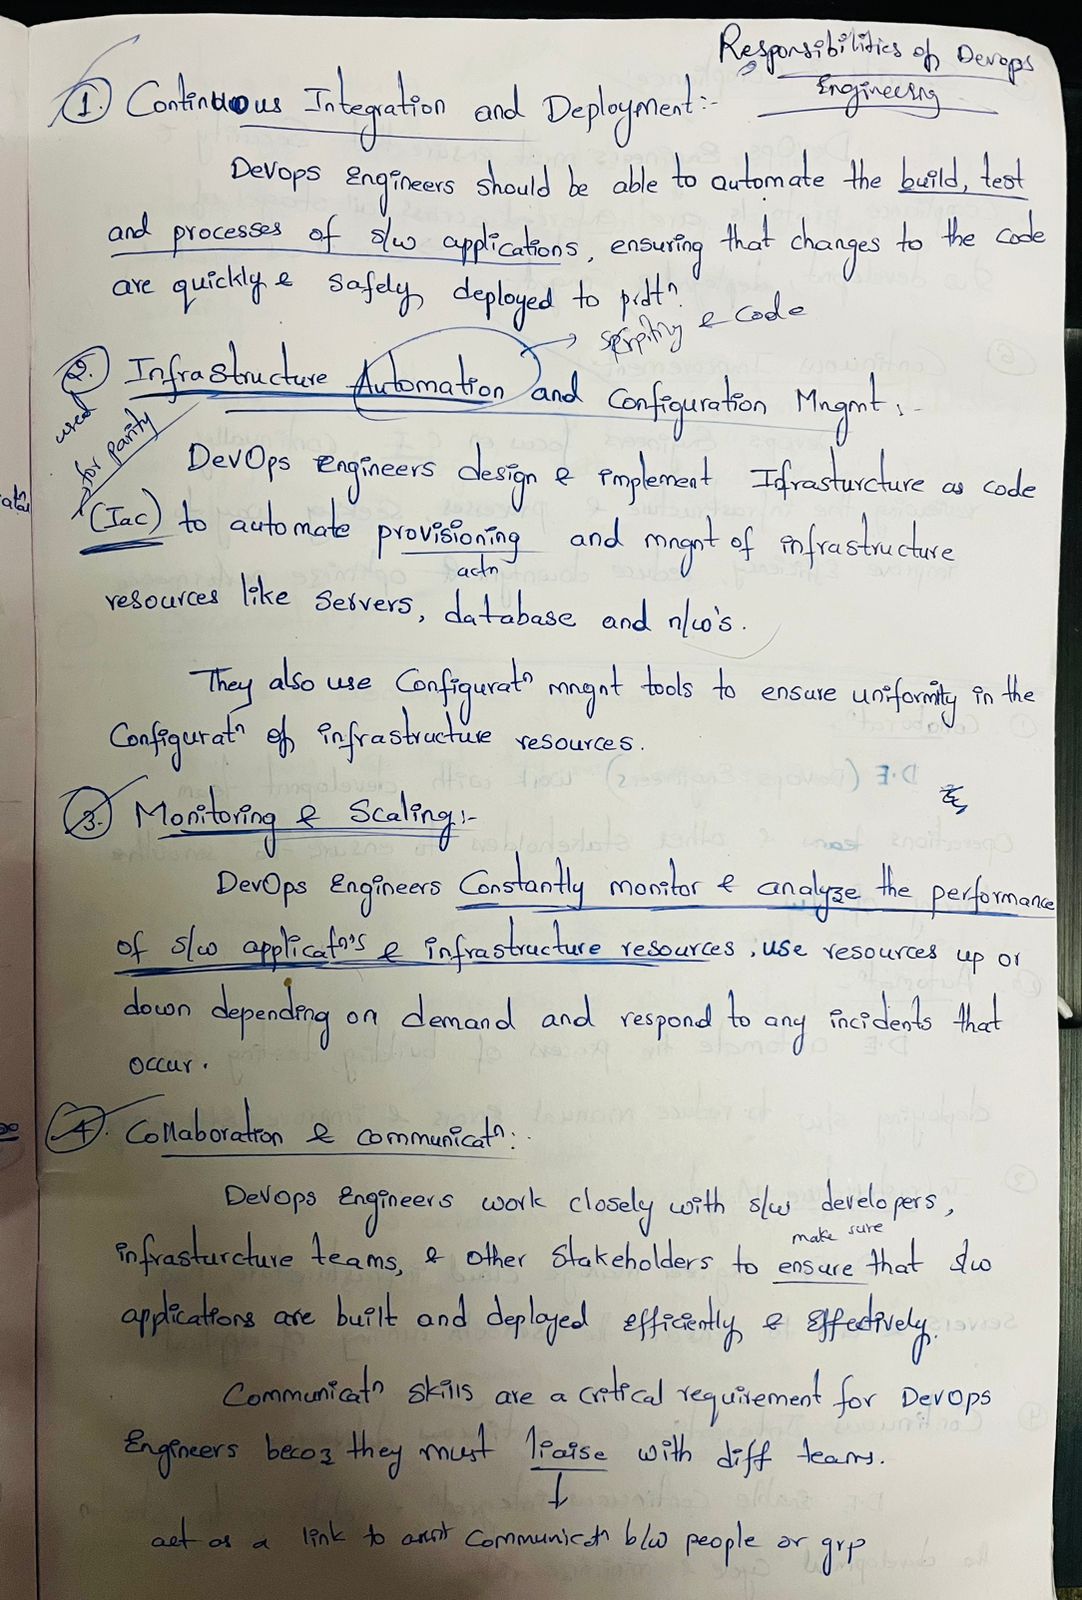 Responsibilities of Devops
Engineering
1. Continuous Integration and Deployment:-
Devops Engineers should be able to automate the build, test
and processes of s/w applications, ensuring that changes to the code
are quickly & safely deployed to prdtn.
scripting & code
2. Infrastructure Automation and Configuration Mngmt:-
used
for parity
DevOps Engineers design & implement Ifrasturcture as code
(Iac) to automate provisioning and mngnt of infrastructure
actn
resources like Servers, database and n/w's.
They also use Configuratn mngnt tools to ensure uniformity in the
Configuratn of infrastructure resources.
3. Monitoring & Scaling:-
DevOps Engineers Constantly monitor & analyze the performance
of s/w applicatn's & infrastructure resources, use resources up or
down depending on demand and respond to any incidents that
occur.
4. Collaboration & communicatn:-
Devops Engineers work closely with s/w developers,
make sure
infrasturcture teams, & other Stakeholders to ensure that s/w
applications are built and deployed efficiently & Effectively.
Communicatn skills are a critical requirement for DevOps
Engineers becoz they must liaise with diff teams.
act as a link to communicatn b/w people or grp